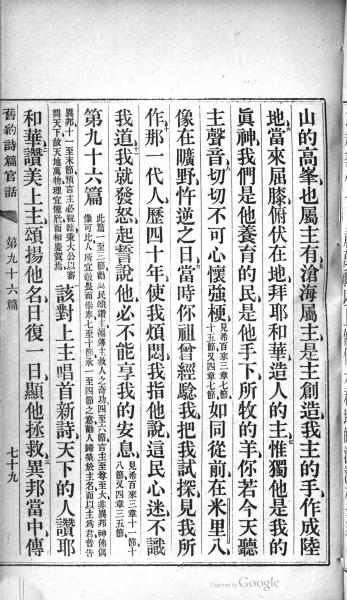 山的高峯也屬主有滄海屬主是主創造我主的手作成陸
地當來屈膝俯伏在地拜耶和華造人的主惟獨他是我的
眞神我們是他養育的民是他手下所牧的羊你若今天聽
主聲音切切不可心懷強梗見希百來三章七節十五節又四章七節如同從前在米里八
像在曠野忤逆之日當時你祖曾經騐我把我試探見我所
作那一代人歷四十年使我煩悶我指他說這民心迷不識
我道我就發怒起誓說他必不能享我的安息見希百來三章十一節十八節又四章三五節
第九十六篇此篇一至三節勸萬民頌讚主傳揚主救人之奇功四至六節言主至尊至大非異邦神佛偶像可比人所宜敬畏而崇奉七至十節承一至四節之意勸人歸榮於主名而以主爲君普告
異邦十一至末節預言主必親臨乘大公以審問天下故天地萬物理宜懽欣而相慶賀焉該對上主唱首新詩天下的人讚耶
和華讚美上主頌揚他名日復一日顯他拯救異邦當中傳
舊約詩篇官話 第九十六篇 七十九
Digitized by Google